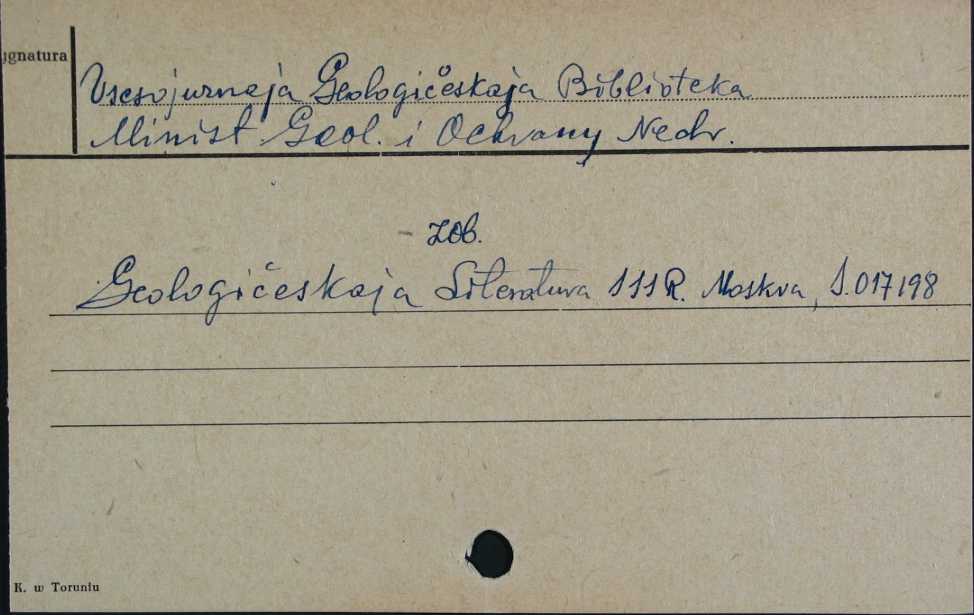 ygnatura
Vsesojuznaja Geologičeskaja Biblioteka
Minist Geol. i Ochrany Nedr.
- zob.
Geologičeskaja Literatura SSSR. Moskva, S.017198
K. w Toruniu